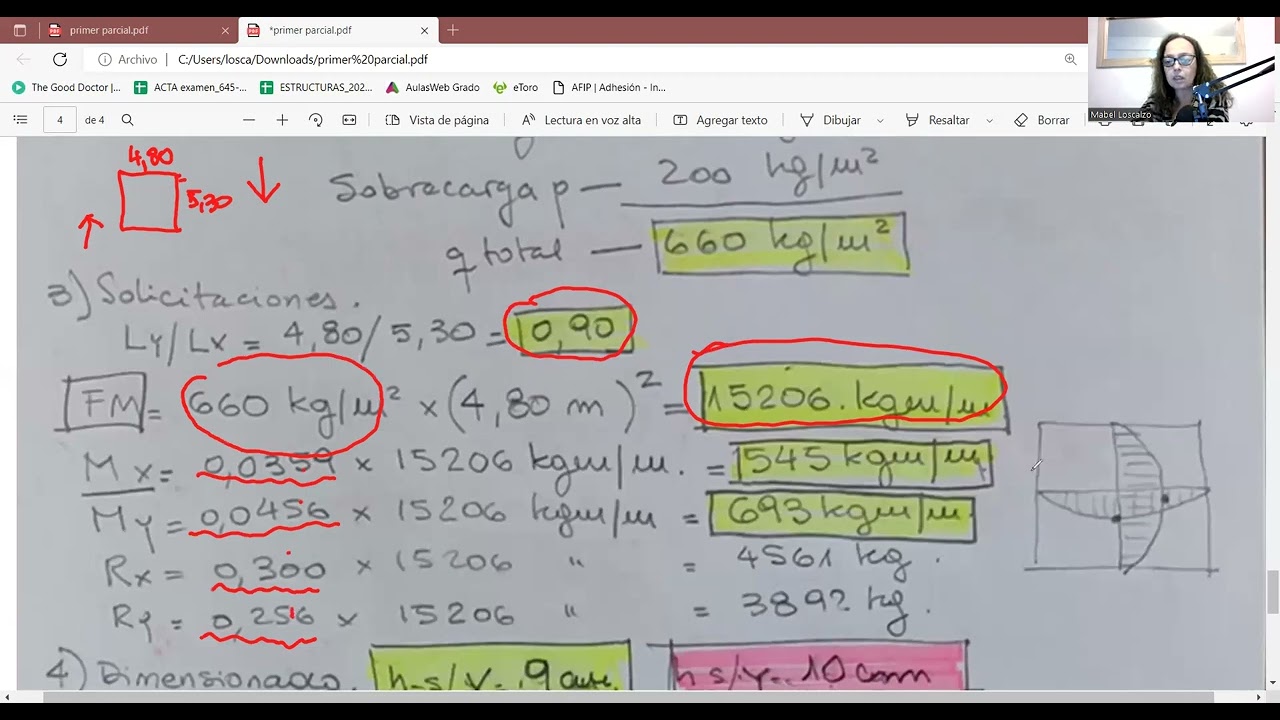 primer parcial.pdf
*primer parcial.pdf
Archivo C:/Users/losca/Downloads/primer%20parcial.pdf
The Good Doctor |... ACTA examen_645-... ESTRUCTURAS_202... AulasWeb Grado eToro AFIP | Adhesión - In...
Mabel Loscalzo
4 de 4 Vista de página Lectura en voz alta Agregar texto Dibujar Resaltar Borrar
4,80
5,30
Sobrecarga p — 200 kg/m²
q total — 660 kg/m²
3) Solicitaciones.
Ly/Lx = 4,80/5,30 = 0,90
FM = 660 kg/m² × (4,80 m)² = 15206. kgm/m
Mx = 0,0359 × 15206 kgm/m. = 1545 kgm/m
My = 0,0456 × 15206 kgm/m = 693 kgm/m.
Rx = 0,300 × 15206 " = 4561 kg.
Ry = 0,256 × 15206 " = 3892 kg.
4) Dimensionado.